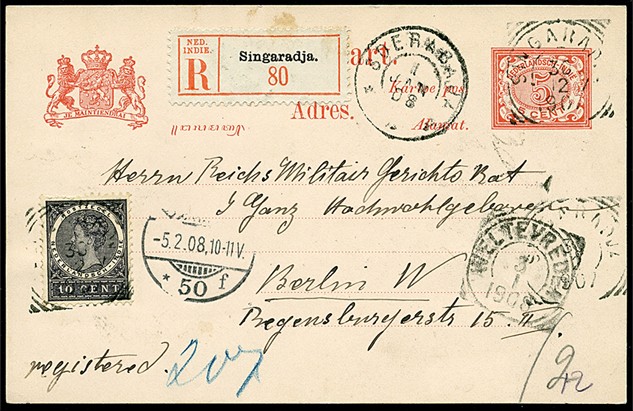 NED. INDIE.
Singaradja.
R
80
SOERABAJA
SINGARADJA
NEDERLANDSCH-INDIE
5
CENT
JE MAINTIENDRAI
Kartoe pos
Adres.
Alamat.
Herrn Reichs Militair Gerichts Rat
J Ganz Hochwohlgeboren
-5.2.08.10-11V.
* 50 f
10 CENT
WELTEVREDEN
3
1
1908
Berlin W
Regensburgerstr 15. II
registered.
207